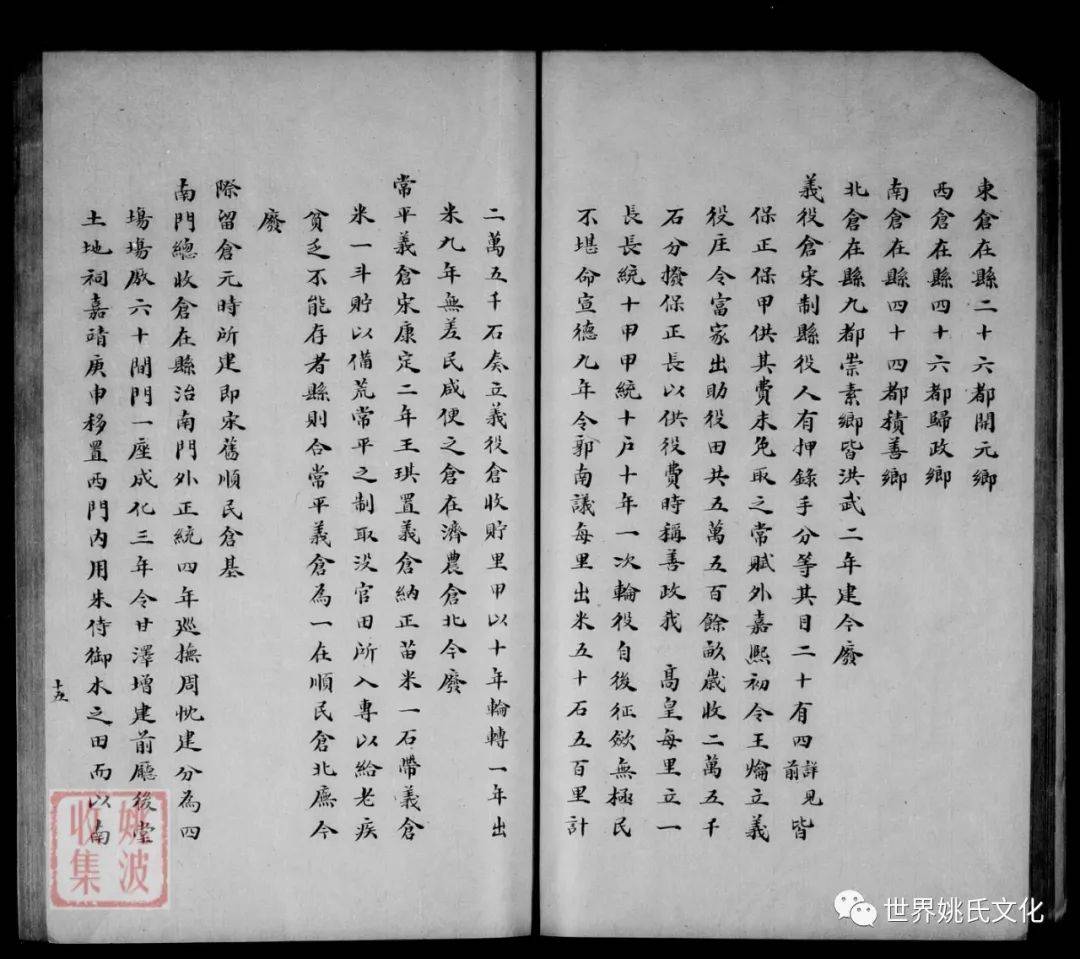 東倉在縣二十六都開元鄉
西倉在縣四十六都歸政鄉
南倉在縣四十四都積善鄉
北倉在縣九都崇素鄉皆洪武二年建今廢
義役倉宋制縣役人有押錄手分等其目二十有四詳見前皆
保正保甲供其費未免取之常賦外嘉熙初令王爚立義
役庄令富家出助役田共五萬五百餘畝歲收二萬五千
石分撥保正長以供役費時稱善政我 高皇每里立一
長長統十甲甲統十戶十年一次輪役自後征歛無極民
不堪命宣德九年令郭南議每里出米五十石五百里計
二萬五千石奏立義役倉收貯里甲以十年輪轉一年出
米九年無差民咸便之倉在濟農倉北今廢
常平義倉宋康定二年王琪置義倉納正苗米一石帶義倉
米一斗貯以備荒常平之制取沒官田所入專以給老疾
貧乏不能存者縣則合常平義倉為一在順民倉北廡今
廢
際留倉元時所建即宋舊順民倉基
南門總收倉在縣治南門外正統四年廵撫周忱建分為四
塲塲厫六十間門一座成化三年令甘澤增建前廳後堂
土地祠嘉靖庚申移置西門內用朱侍御木之田而以南
十五
姚波
收集
世界姚氏文化